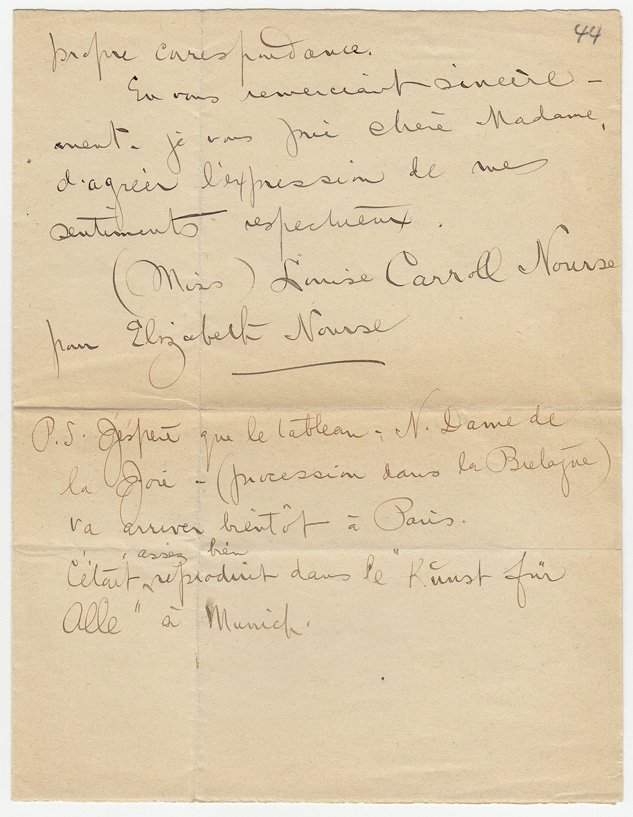 44
propre correspondance.
En vous remerciant sincère-
ment. je vous prie chère Madame,
d'agréer l'expression de mes
sentiments respectueux.
(Miss) Louise Carroll Nourse
pour Elizabeth Nourse
P.S. J'espère que le tableau - N. Dame de
la Joie - (procession dans la Bretagne)
va arriver bientôt à Paris.
assez bien
C'était reproduit dans le "Kunst für
Alle" à Munich.